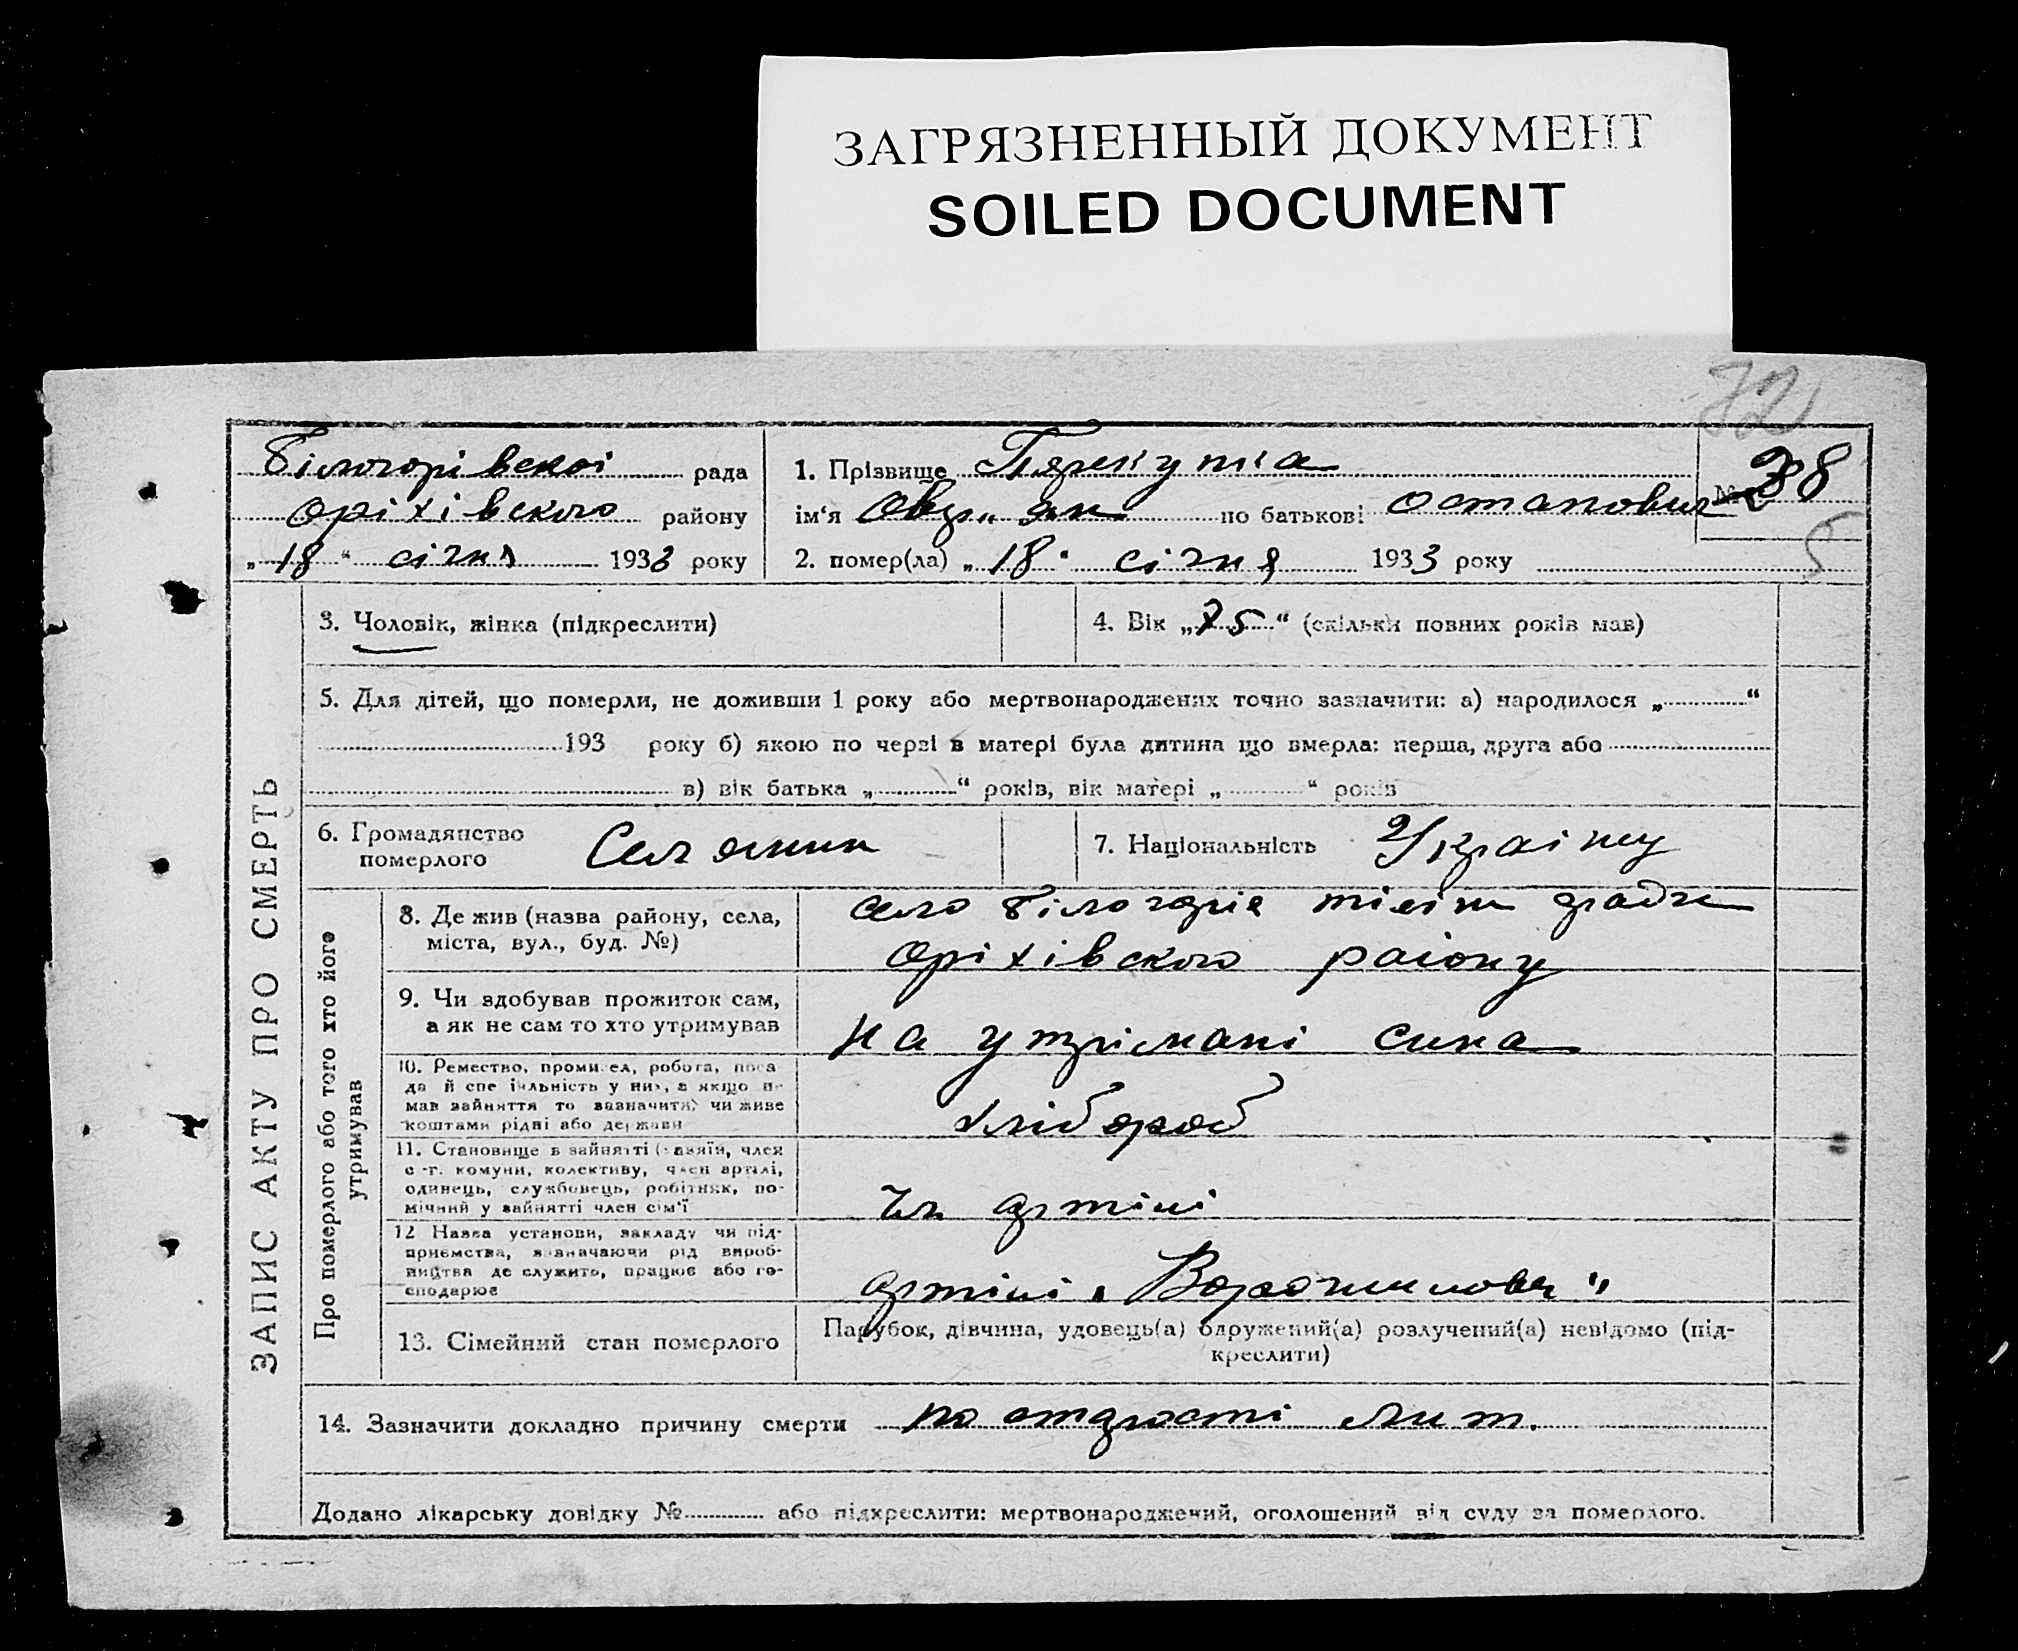 ЗАГРЯЗНЕННЫЙ ДОКУМЕНТ
SOILED DOCUMENT
72
Білогорівської рада
Оріхівского району
„18“ січня 1933 року
1. Прізвище
ім'я по батькові Остапович
2. помер(ла) „18“ січня 1933 року
№ 38
5
ЗАПИС АКТУ ПРО СМЕРТЬ
3. Чоловік, жінка (підкреслити)
4. Вік „75“ (скільки повних років мав)
5. Для дітей, що померли, не доживши 1 року або мертвонароджених точно зазначити: а) народилося „ “
193 року б) якою по черзі в матері була дитина що вмерла: перша, друга або
в) вік батька „ “ років, вік матері „ “ років
6. Громадянство
померлого Селянин
7. Національність Украінц
Про померлого або того хто його
утримував
8. Де жив (назва району, села,
міста, вул., буд. №)
село Білогорie
Оріхівского раіону
9. Чи здобував прожиток сам,
а як не сам то хто утримував
на утрімані сина
10. Ремество, промисел, робота, поса
да й спеціяльність у ним, а якщо н-
мав зайняття то зазначити, чи живе
коштами рідні або держави
хлібороб
11. Становище в зайнятті (хазяїн, член
с-г. комуни, колективу, член артілі,
одинець, службовець, робітник, по-
мічний у зайнятті член сім'ї
чл артілі
12 Назва установи, закладу чи під-
приємства, зазначаючи рід вироб-
ництва де служить, працює або го-
сподарює
артілі „Ворошилова“
13. Сімейний стан померлого
Парубок, дівчина, удовець(а) одружений(а) розлучений(а) невідомо (під-
креслити)
14. Зазначити докладно причину смерти по старості лит.
Додано лікарську довідку № або підкреслити: мертвонароджений, оголошений від суду за померлого.